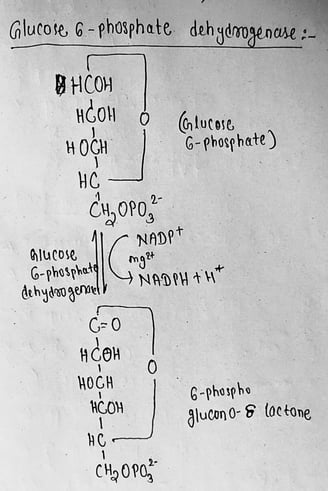 Glucose 6-phosphate dehydrogenase:-
HCOH
HCOH
O
(Glucose
6-phosphate)
HOCH
HC
CH₂OPO₃²⁻
NADP⁺
Glucose
6-phosphate
dehydrogenase
mg²⁺
NADPH + H⁺
C=O
HCOH
O
HOCH
HCOH
6-phospho
glucono-δ lactone
HC
CH₂OPO₃²⁻